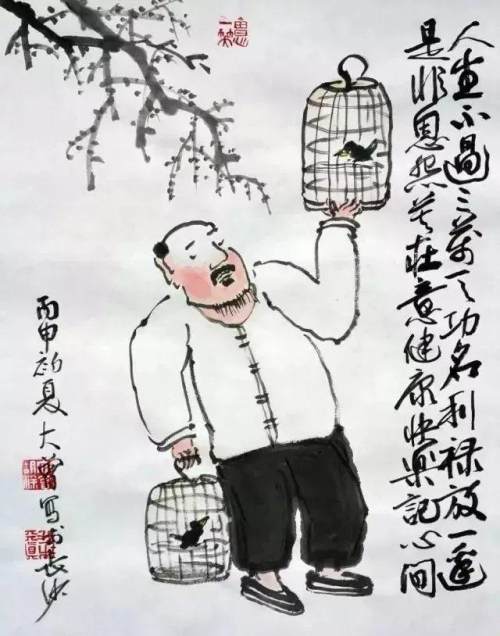 人生不過三萬天功名利祿放一邊
是非恩怨莫在意健康快樂記心間
丙申初夏大寫於長沙